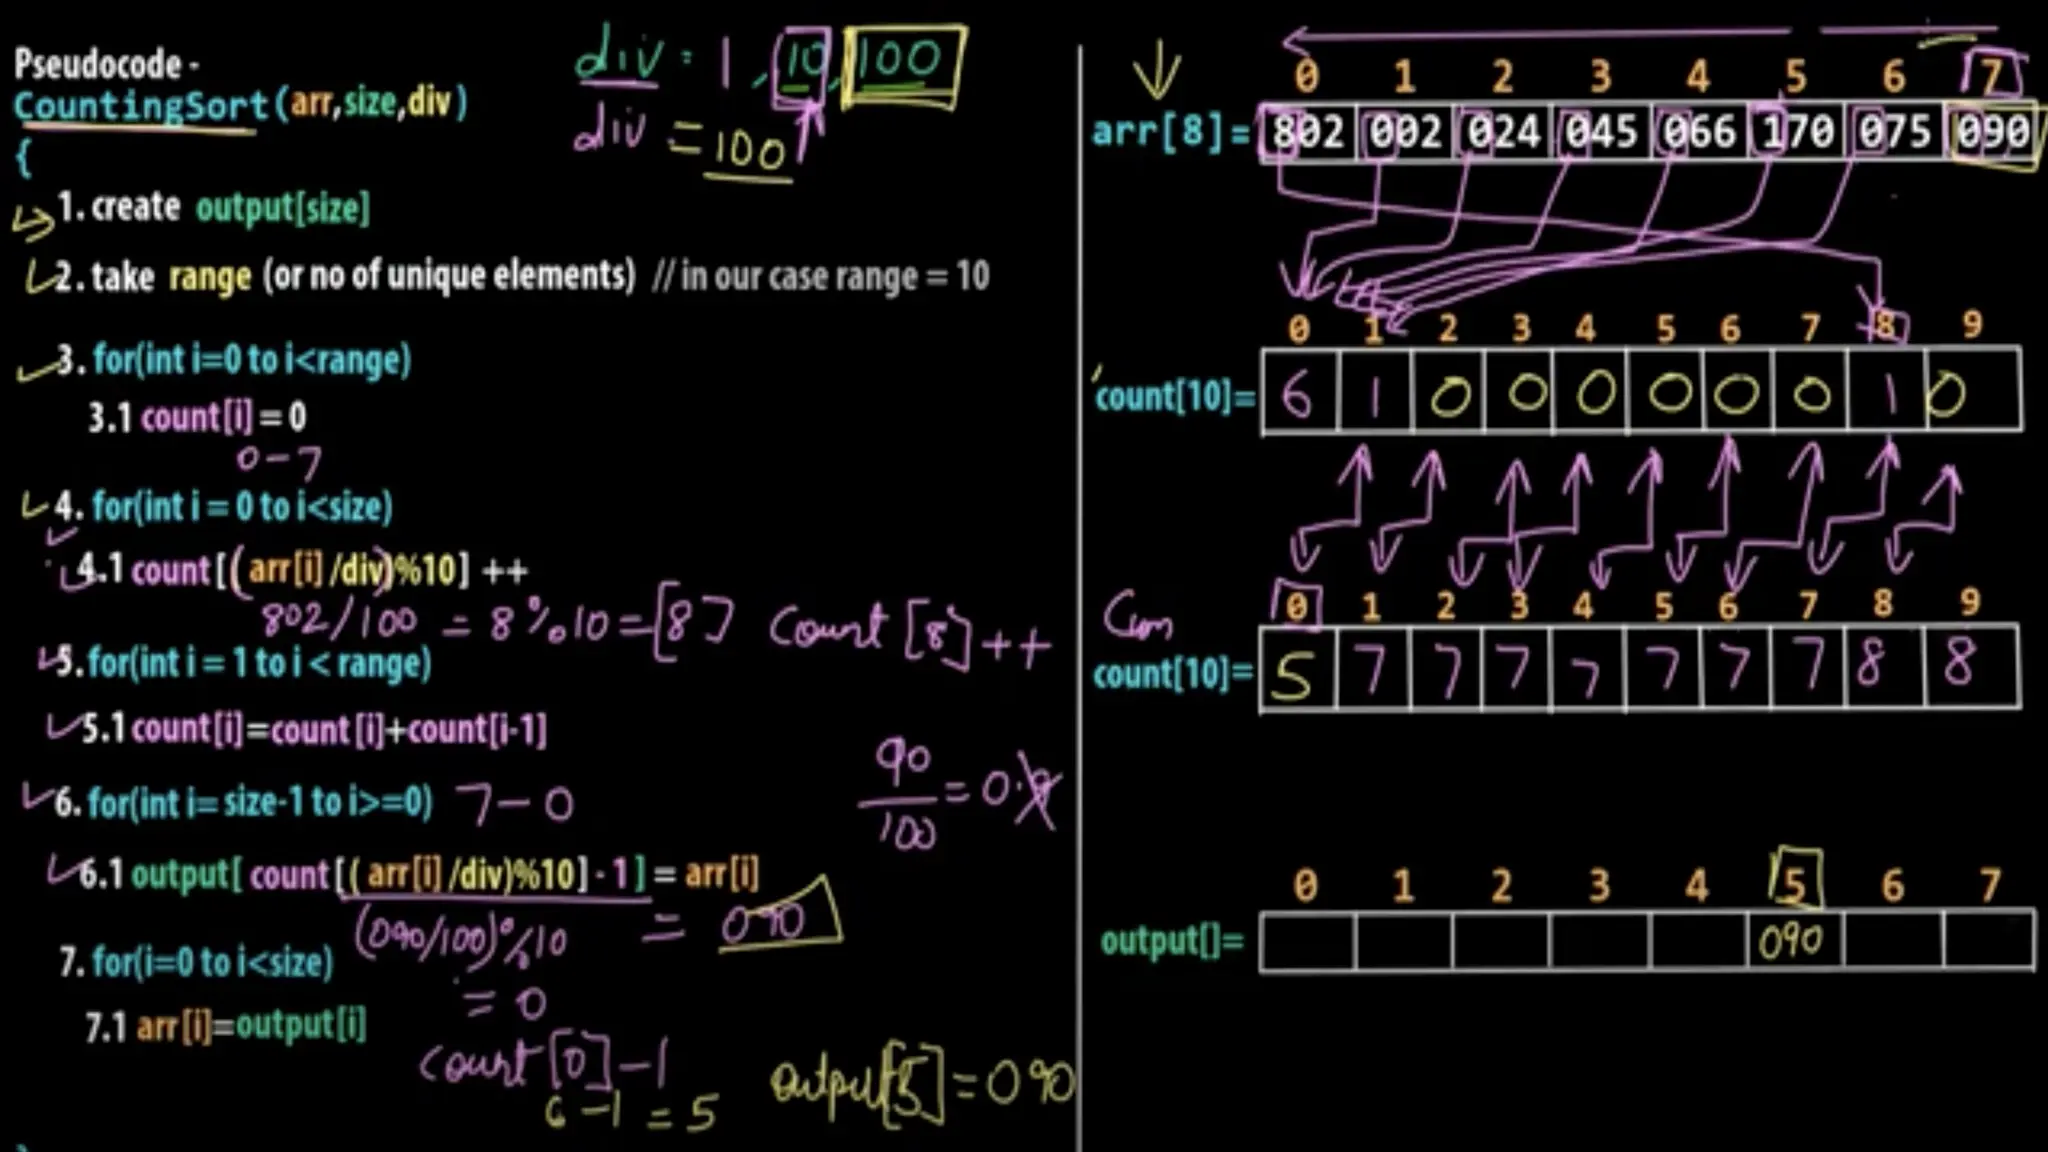 Pseudocode -
CountingSort(arr,size,div)
{
div : 1, 10, 100
div = 100
1. create output[size]
2. take range (or no of unique elements) // in our case range = 10
3. for(int i=0 to i<range)
3.1 count[i] = 0
0-7
4. for(int i = 0 to i<size)
4.1 count[(arr[i]/div)%10] ++
802/100 = 8%10=[8] Count [8]++
5. for(int i = 1 to i < range)
5.1 count[i]=count[i]+count[i-1]
6. for(int i= size-1 to i>=0) 7-0
90
100
= 0.9
6.1 output[ count[(arr[i]/div)%10] - 1] = arr[i]
(090/100)%10 = 090
= 0
7. for(i=0 to i<size)
7.1 arr[i]=output[i]
count[0]-1
6-1 = 5
output[5]=090
0 1 2 3 4 5 6 7
arr[8]= 802 002 024 045 066 170 075 090
0 1 2 3 4 5 6 7 8 9
count[10]= 6 1 0 0 0 0 0 0 1 0
Cum 0 1 2 3 4 5 6 7 8 9
count[10]= 5 7 7 7 7 7 7 7 8 8
0 1 2 3 4 5 6 7
output[]= 090